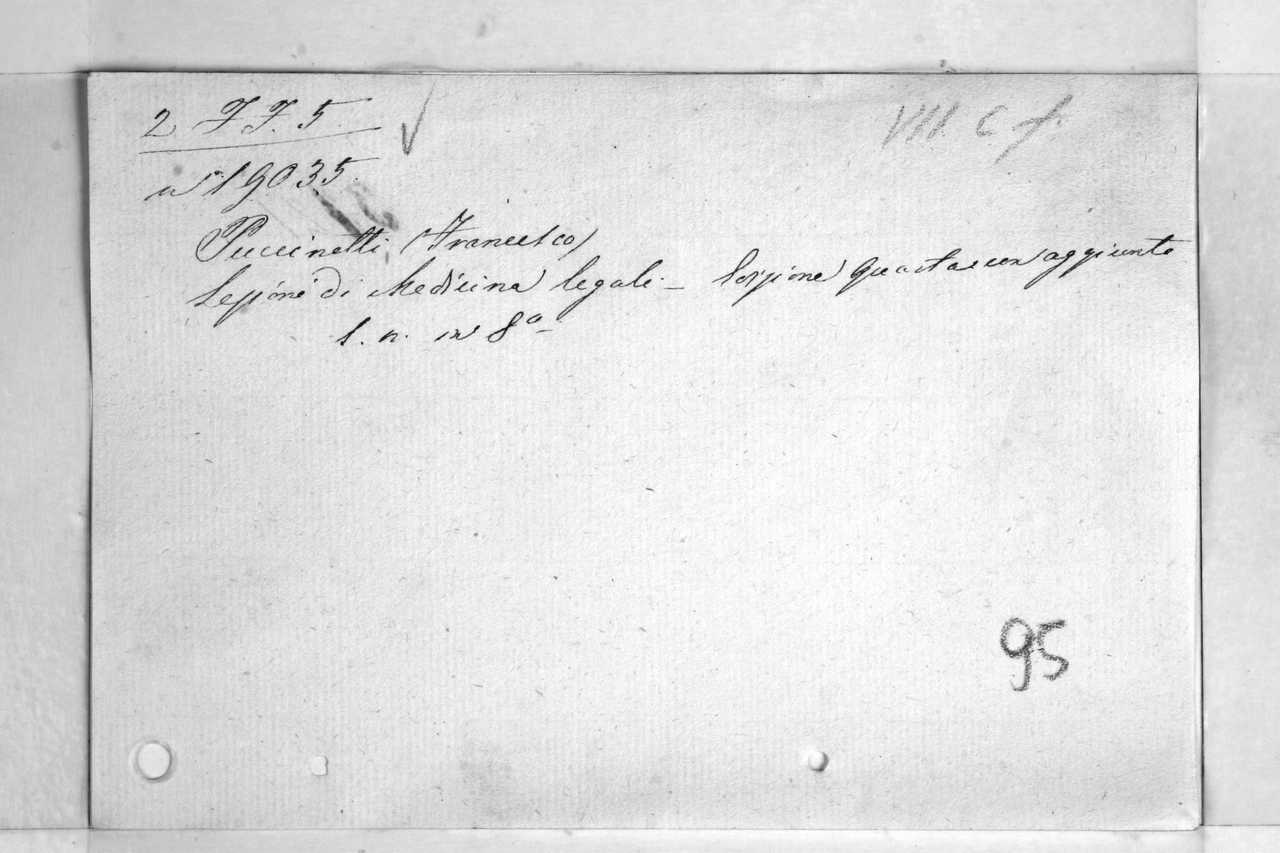 2 F F. 5.
VIII. C. f.
n° 19035.
Puccinotti (Francesco)
Lezioni di Medicina legale – Lezione Quarta con aggiunte
s. n. in 8°
95